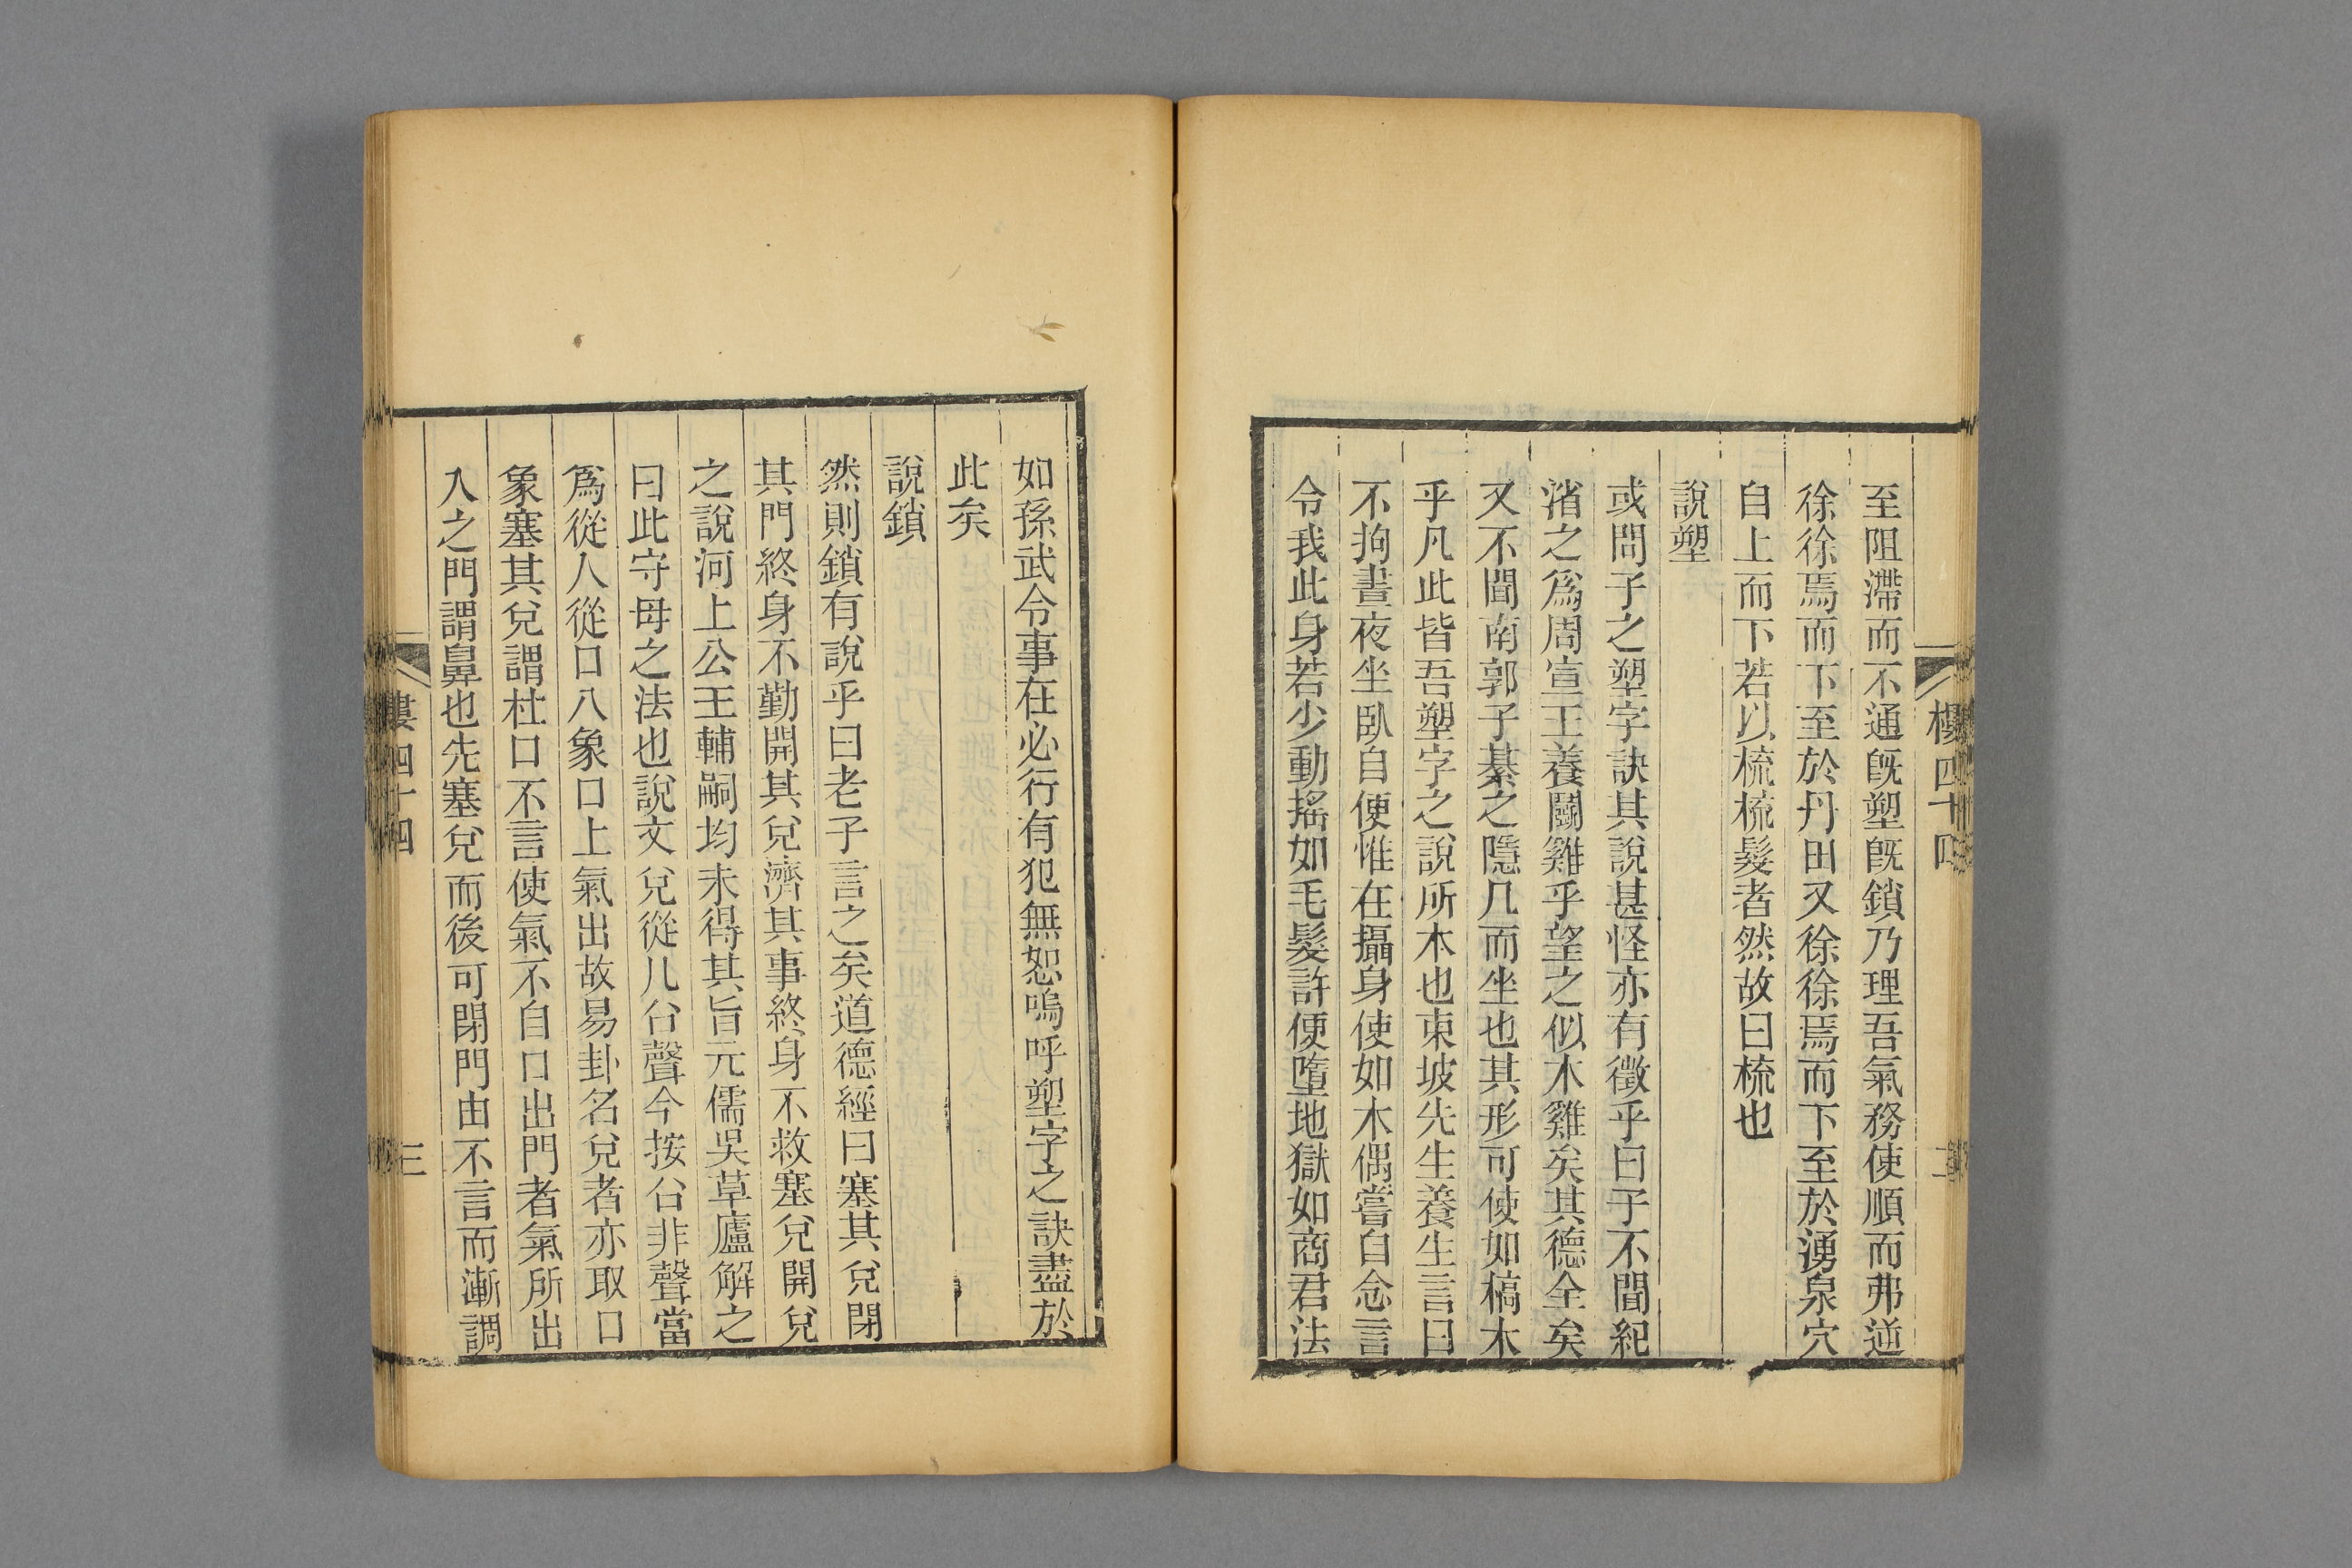 至阻滯而不通既塑既鎖乃理吾氣務使順而弗逆
徐徐焉而下至於丹田又徐徐焉而下至於湧泉穴
自上而下若以梳梳髮者然故曰梳也
說塑
或問子之塑字訣其說甚怪亦有徵乎曰子不聞紀
渻之爲周宣王養鬭雞乎望之似木雞矣其德全矣
又不聞南郭子綦之隱几而坐也其形可使如槁木
乎凡此皆吾塑字之說所本也東坡先生養生言曰
不拘晝夜坐臥自便惟在攝身使如木偶嘗自念言
令我此身若少動搖如毛髮許便墮地獄如商君法
如孫武令事在必行有犯無恕嗚呼塑字之訣盡於
此矣
說鎖
然則鎖有說乎曰老子言之矣道德經曰塞其兌閉
其門終身不勤開其兌濟其事終身不救塞兌開兌
之說河上公王輔嗣均未得其旨元儒吳草廬解之
曰此守母之法也說文兌從儿㕣聲今按㕣非聲當
爲從人從口八象口上氣出故易卦名兌者亦取口
象塞其兌謂杜口不言使氣不自口出門者氣所出
入之門謂鼻也先塞兌而後可閉門由不言而漸調
四十四
三